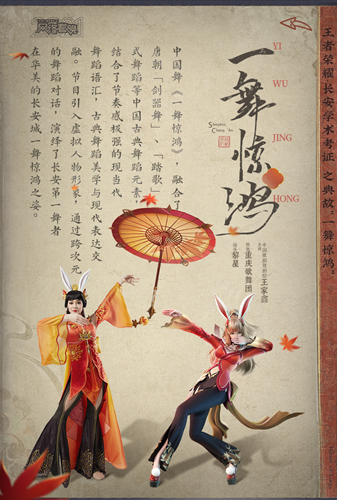 王者荣耀长安学术考证之典故：一舞惊鸿。
一舞惊鸿
YI
WU
JING
HONG
中国舞《一舞惊鸿》，融合了
唐朝「剑器舞」、「踏歌」
式舞蹈等中国古典舞蹈元素，
结合了节奏感极强的现当代
舞蹈语汇，古典舞蹈美学与现代表达交
融。节目引入虚拟人物形象，通过跨次元
的舞蹈对话，演绎了长安第一舞者
在华美的长安城一舞惊鸿之姿。
王家鑫
重庆歌舞团
黎星